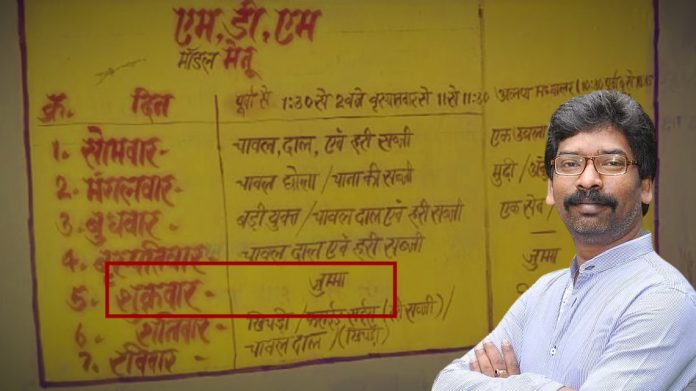 एम. डी. एम
मॉडल मेनू
क्र. दिन पूर्वा से 1:30 से 2 बजे 11 से 11:30
1. सोमवार- चावल, दाल, एवं हरी सब्जी एक उबला
2. मंगलवार- चावल छोला / चाना की सब्जी मुढ़ी /
3. बुधवार- बड़ी युक्त / चावल दाल एवं हरी सब्जी एक सेब
4. चावल दाल एवं हरी सब्जी जुम्मा
5. शुक्रवार- जुम्मा
6. शनिवार- खिचड़ी /
7. रविवार- चावल दाल / (खिचड़ी)